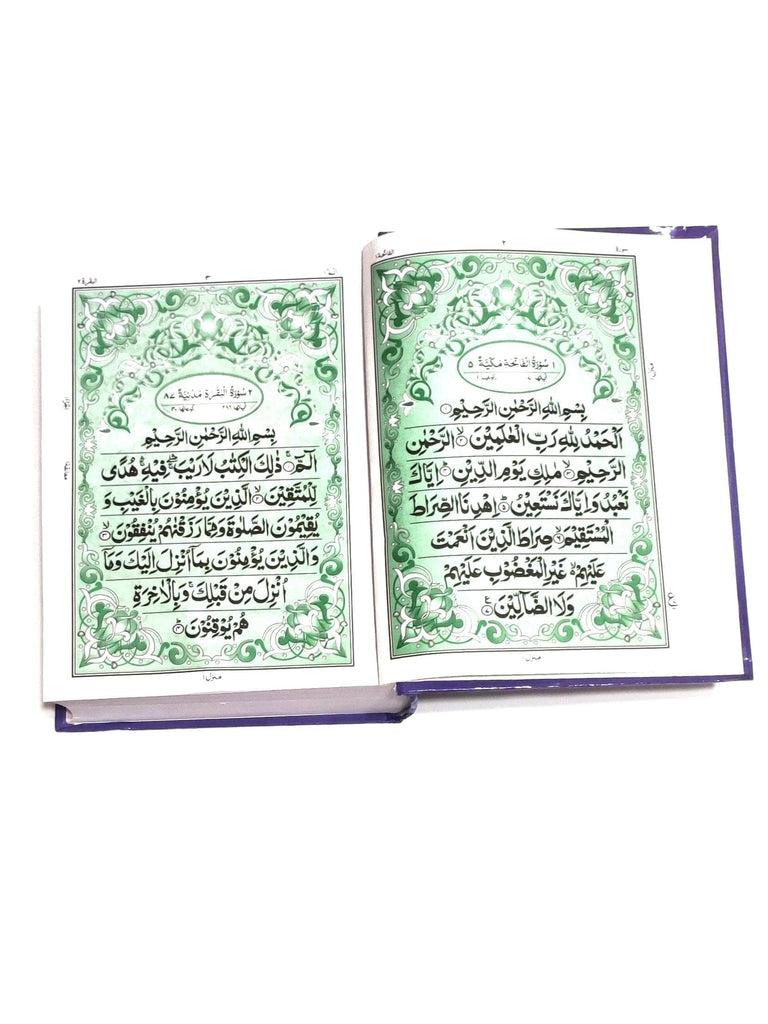 سورة
٢
الفاتحة
١ سُوْرَةُ الْفَاتِحَةِ مَكِّيَّةٌ ٥
بِسْمِ اللهِ الرَّحْمٰنِ الرَّحِيْمِ ①
اَلْحَمْدُ لِلّٰهِ رَبِّ الْعٰلَمِيْنَ ② الرَّحْمٰنِ
الرَّحِيْمِ ③ مٰلِكِ يَوْمِ الدِّيْنِ ④ اِيَّاكَ
نَعْبُدُ وَاِيَّاكَ نَسْتَعِيْنُ ⑤ اِهْدِنَا الصِّرَاطَ
الْمُسْتَقِيْمَ ⑥ صِرَاطَ الَّذِيْنَ اَنْعَمْتَ
عَلَيْهِمْ غَيْرِ الْمَغْضُوْبِ عَلَيْهِمْ
وَلَا الضَّآلِّيْنَ
منزل ١
الٓمّٓ
٣
البقرة ٢
٢ سُوْرَةُ الْبَقَرَةِ مَدَنِيَّةٌ ٨٧
اٰيٰتُهَا ٢٨٦ رُكُوْعَاتُهَا ٤٠
بِسْمِ اللهِ الرَّحْمٰنِ الرَّحِيْمِ
الٓمّٓ ① ذٰلِكَ الْكِتٰبُ لَا رَيْبَ فِيْهِ هُدًى
لِّلْمُتَّقِيْنَ ② الَّذِيْنَ يُؤْمِنُوْنَ بِالْغَيْبِ وَ
يُقِيْمُوْنَ الصَّلٰوةَ وَمِمَّا رَزَقْنٰهُمْ يُنْفِقُوْنَ ③
وَالَّذِيْنَ يُؤْمِنُوْنَ بِمَآ اُنْزِلَ اِلَيْكَ وَمَآ
اُنْزِلَ مِنْ قَبْلِكَ وَبِالْاٰخِرَةِ
هُمْ يُوْقِنُوْنَ ④
منزل ١